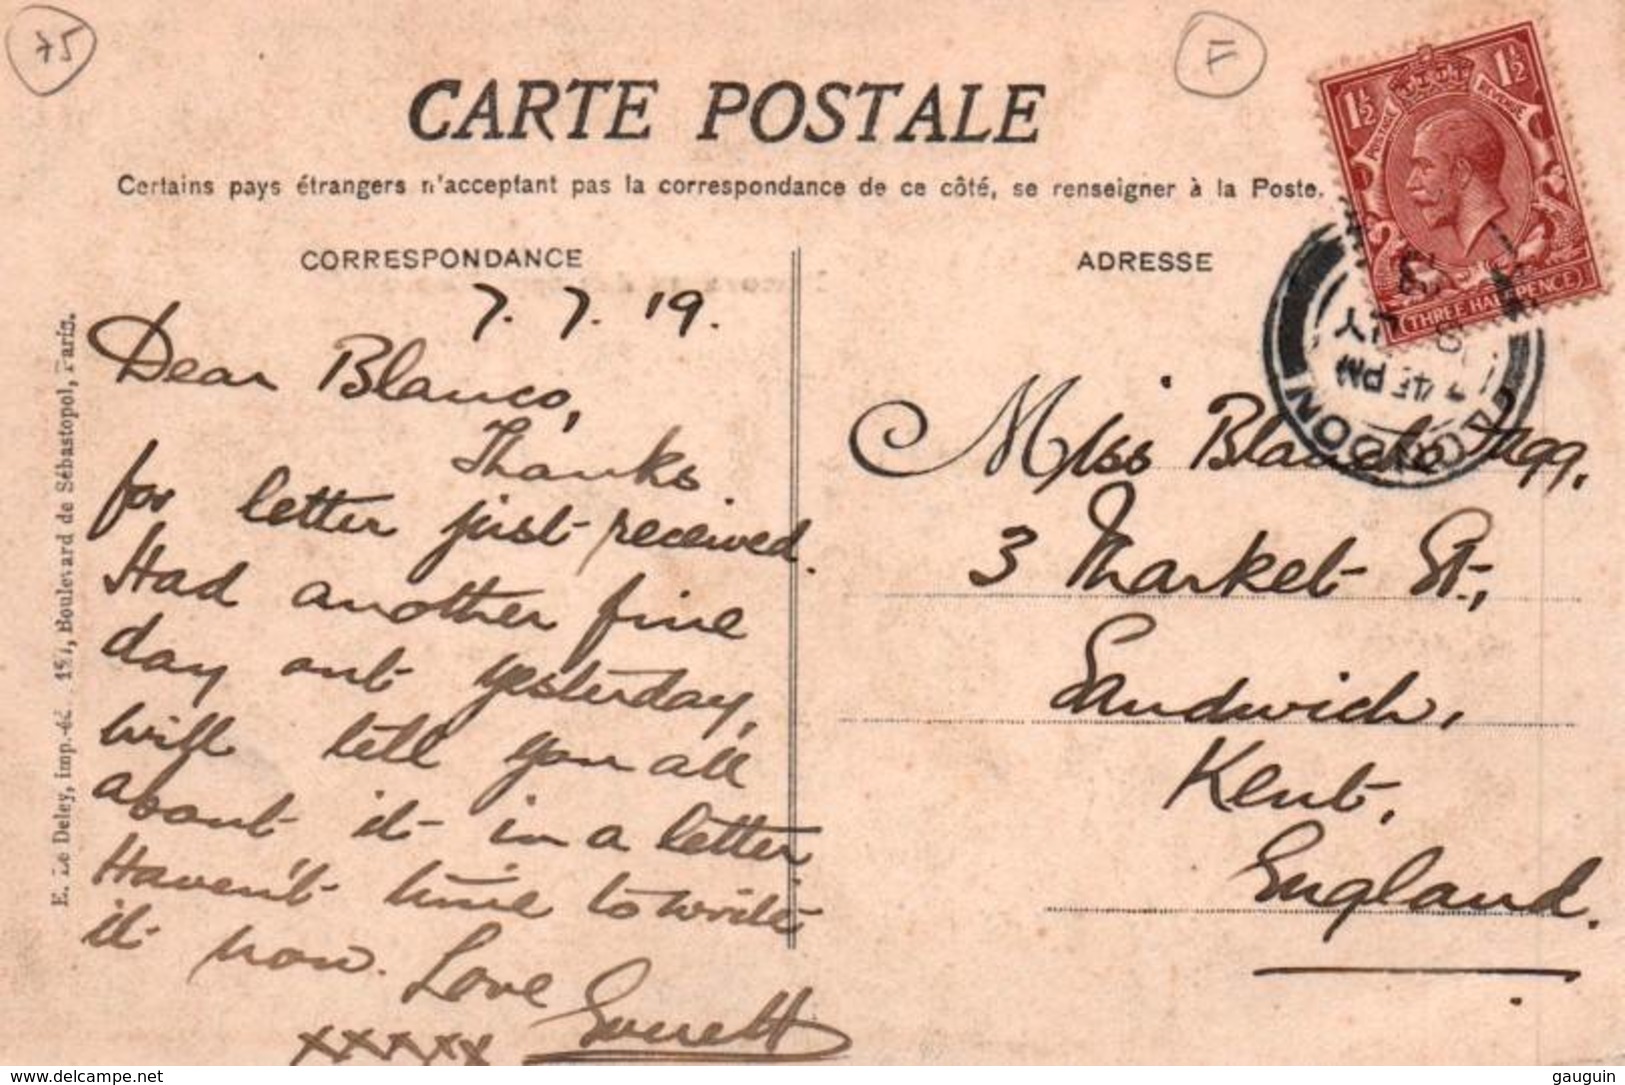 75
F
CARTE POSTALE
Certains pays étrangers n'acceptant pas la correspondance de ce côté, se renseigner à la Poste.
CORRESPONDANCE
7. 7. 19.
Dear Blanco,
Thanks
for letter just received.
Had another fine
day out yesterday,
will tell you all
about it in a letter,
Haven't time to write
it now. Love
Everett
xxxxx
E. Le Deley, imp.-éd., Boulevard de Sébastopol, Paris.
ADRESSE
Miss Blanche
3 Market St.,
Sandwich,
Kent,
England.
1½ 1½
POSTAGE REVENUE
THREE HALFPENCE
LONDON
PM
JY
gauguin
www.delcampe.net